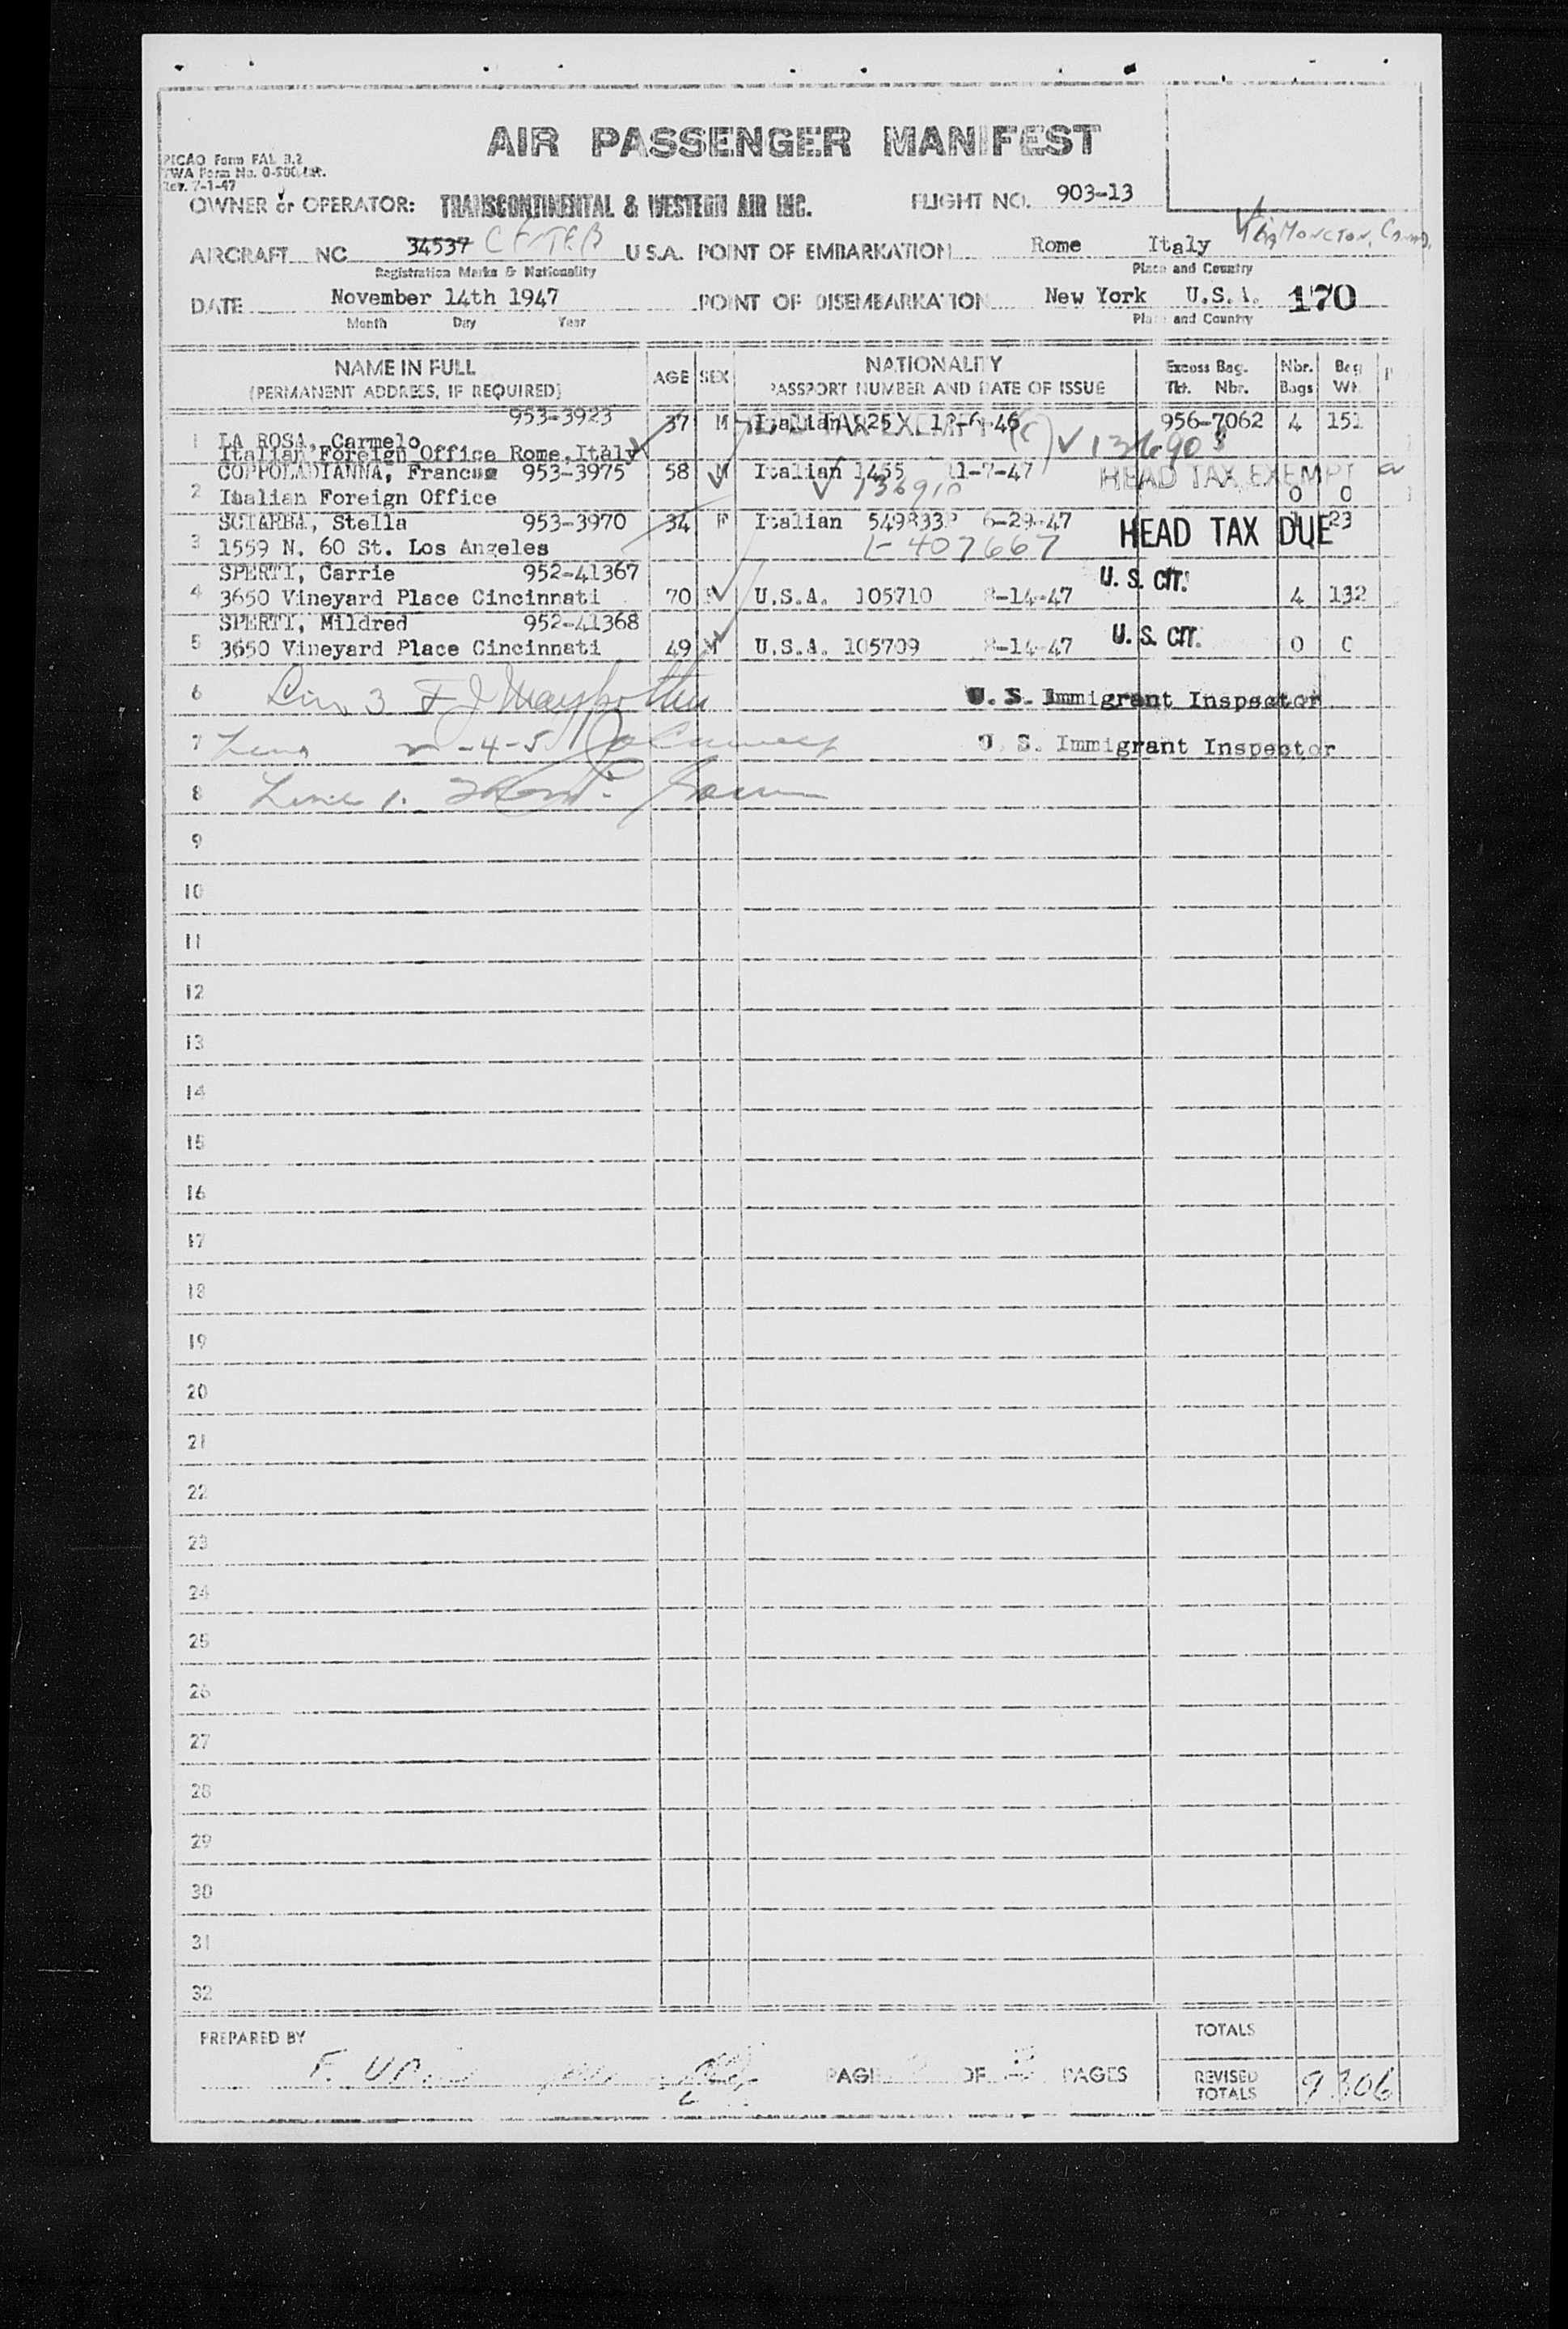 AIR PASSENGER MANIFEST
PICAO Form FAL 3.2
TWA Form No. 0-500 Int.
Rev. 7-1-47
OWNER or OPERATOR: TRANSCONTINENTAL & WESTERN AIR INC. FLIGHT NO. 903-13
AIRCRAFT NC 34537 U.S.A. POINT OF EMBARKATION Rome Italy Via Moncton, Canad.
Registration Marks & Nationality Place and Country
DATE November 14th 1947 POINT OF DISEMBARKATION New York U.S.A. 170
Month Day Year Place and Country
NAME IN FULL AGE SEX NATIONALITY Excess Bag. Nbr. Bag
(PERMANENT ADDRESS, IF REQUIRED) PASSPORT NUMBER AND DATE OF ISSUE Tkt. Nbr. Bags Wt.
953-3923 37 M Italian 956-7062 4 151
1 LA ROSA, Carmelo
Italian Foreign Office Rome, Italy
COPPOLADIANNA, Francus 953-3975 58 M Italian 1455 11-7-47 HEAD TAX EXEMPT
2 Italian Foreign Office 136910 0 0
SCIARBA, Stella 953-3970 34 F Italian 549833P 6-29-47 HEAD TAX DUE 23
3 1559 N. 60 St. Los Angeles 407667
SPERTI, Carrie 952-41367 U.S. CIT.
4 3650 Vineyard Place Cincinnati 70 U.S.A. 105710 8-14-47 4 132
SPERTI, Mildred 952-41368 U.S. CIT.
5 3650 Vineyard Place Cincinnati 49 U.S.A. 105709 8-14-47 0 0
6 Line 3 U. S. Immigrant Inspector
7 Lines 2-4-5 U. S. Immigrant Inspector
8 Line 1.
9
10
11
12
13
14
15
16
17
18
19
20
21
22
23
24
25
26
27
28
29
30
31
32
PREPARED BY TOTALS
F. PAGE OF PAGES REVISED TOTALS 9 306